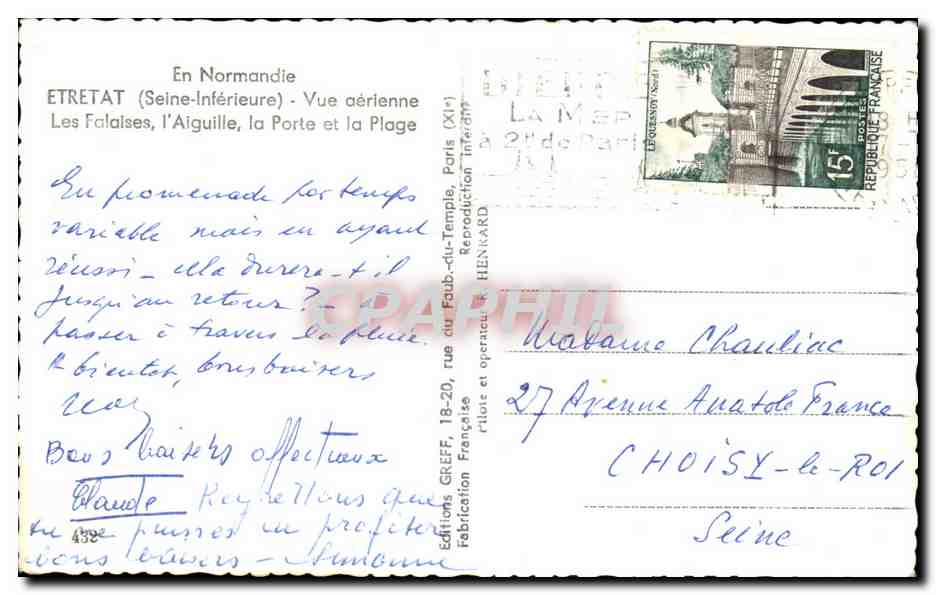 En Normandie
ETRETAT (Seine-Inférieure) - Vue aérienne
Les Falaises, l'Aiguille, la Porte et la Plage
En promenade par temps
variable mais en ayant
réussi - cela durera-t-il
jusqu'au retour ? - à
passer à travers la pluie.
A bientôt, bons baisers
Bons baisers affectueux
Claude Regrettons que
tu ne puisses en profiter
bons baisers - Simonne
452
Editions GREFF, 18-20, rue du Faub.-du-Temple, Paris (XIe)
Fabrication Française Reproduction interdite
Pilote et opérateur R. HENRARD
LA MER
à 2h de Paris
LE QUESNOY (Nord)
15F
POSTES
REPUBLIQUE FRANÇAISE
CPAPHIL
Madame Chauliac
27 Avenue Anatole France
CHOISY-le-ROI
Seine